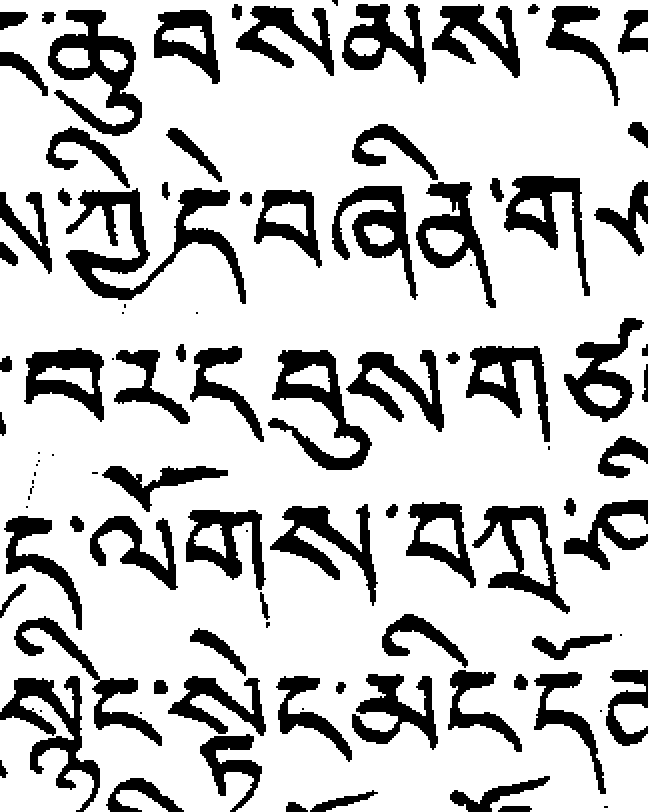 ང་ཆུབ་སམས་ད
ས་ཀྱི་དེ་བཞིན་ག
་བར་དབུས་གཙ
ད་ལོགས་བཀྲ་ཤི
སྙིང་སྟེང་མིང་དོ